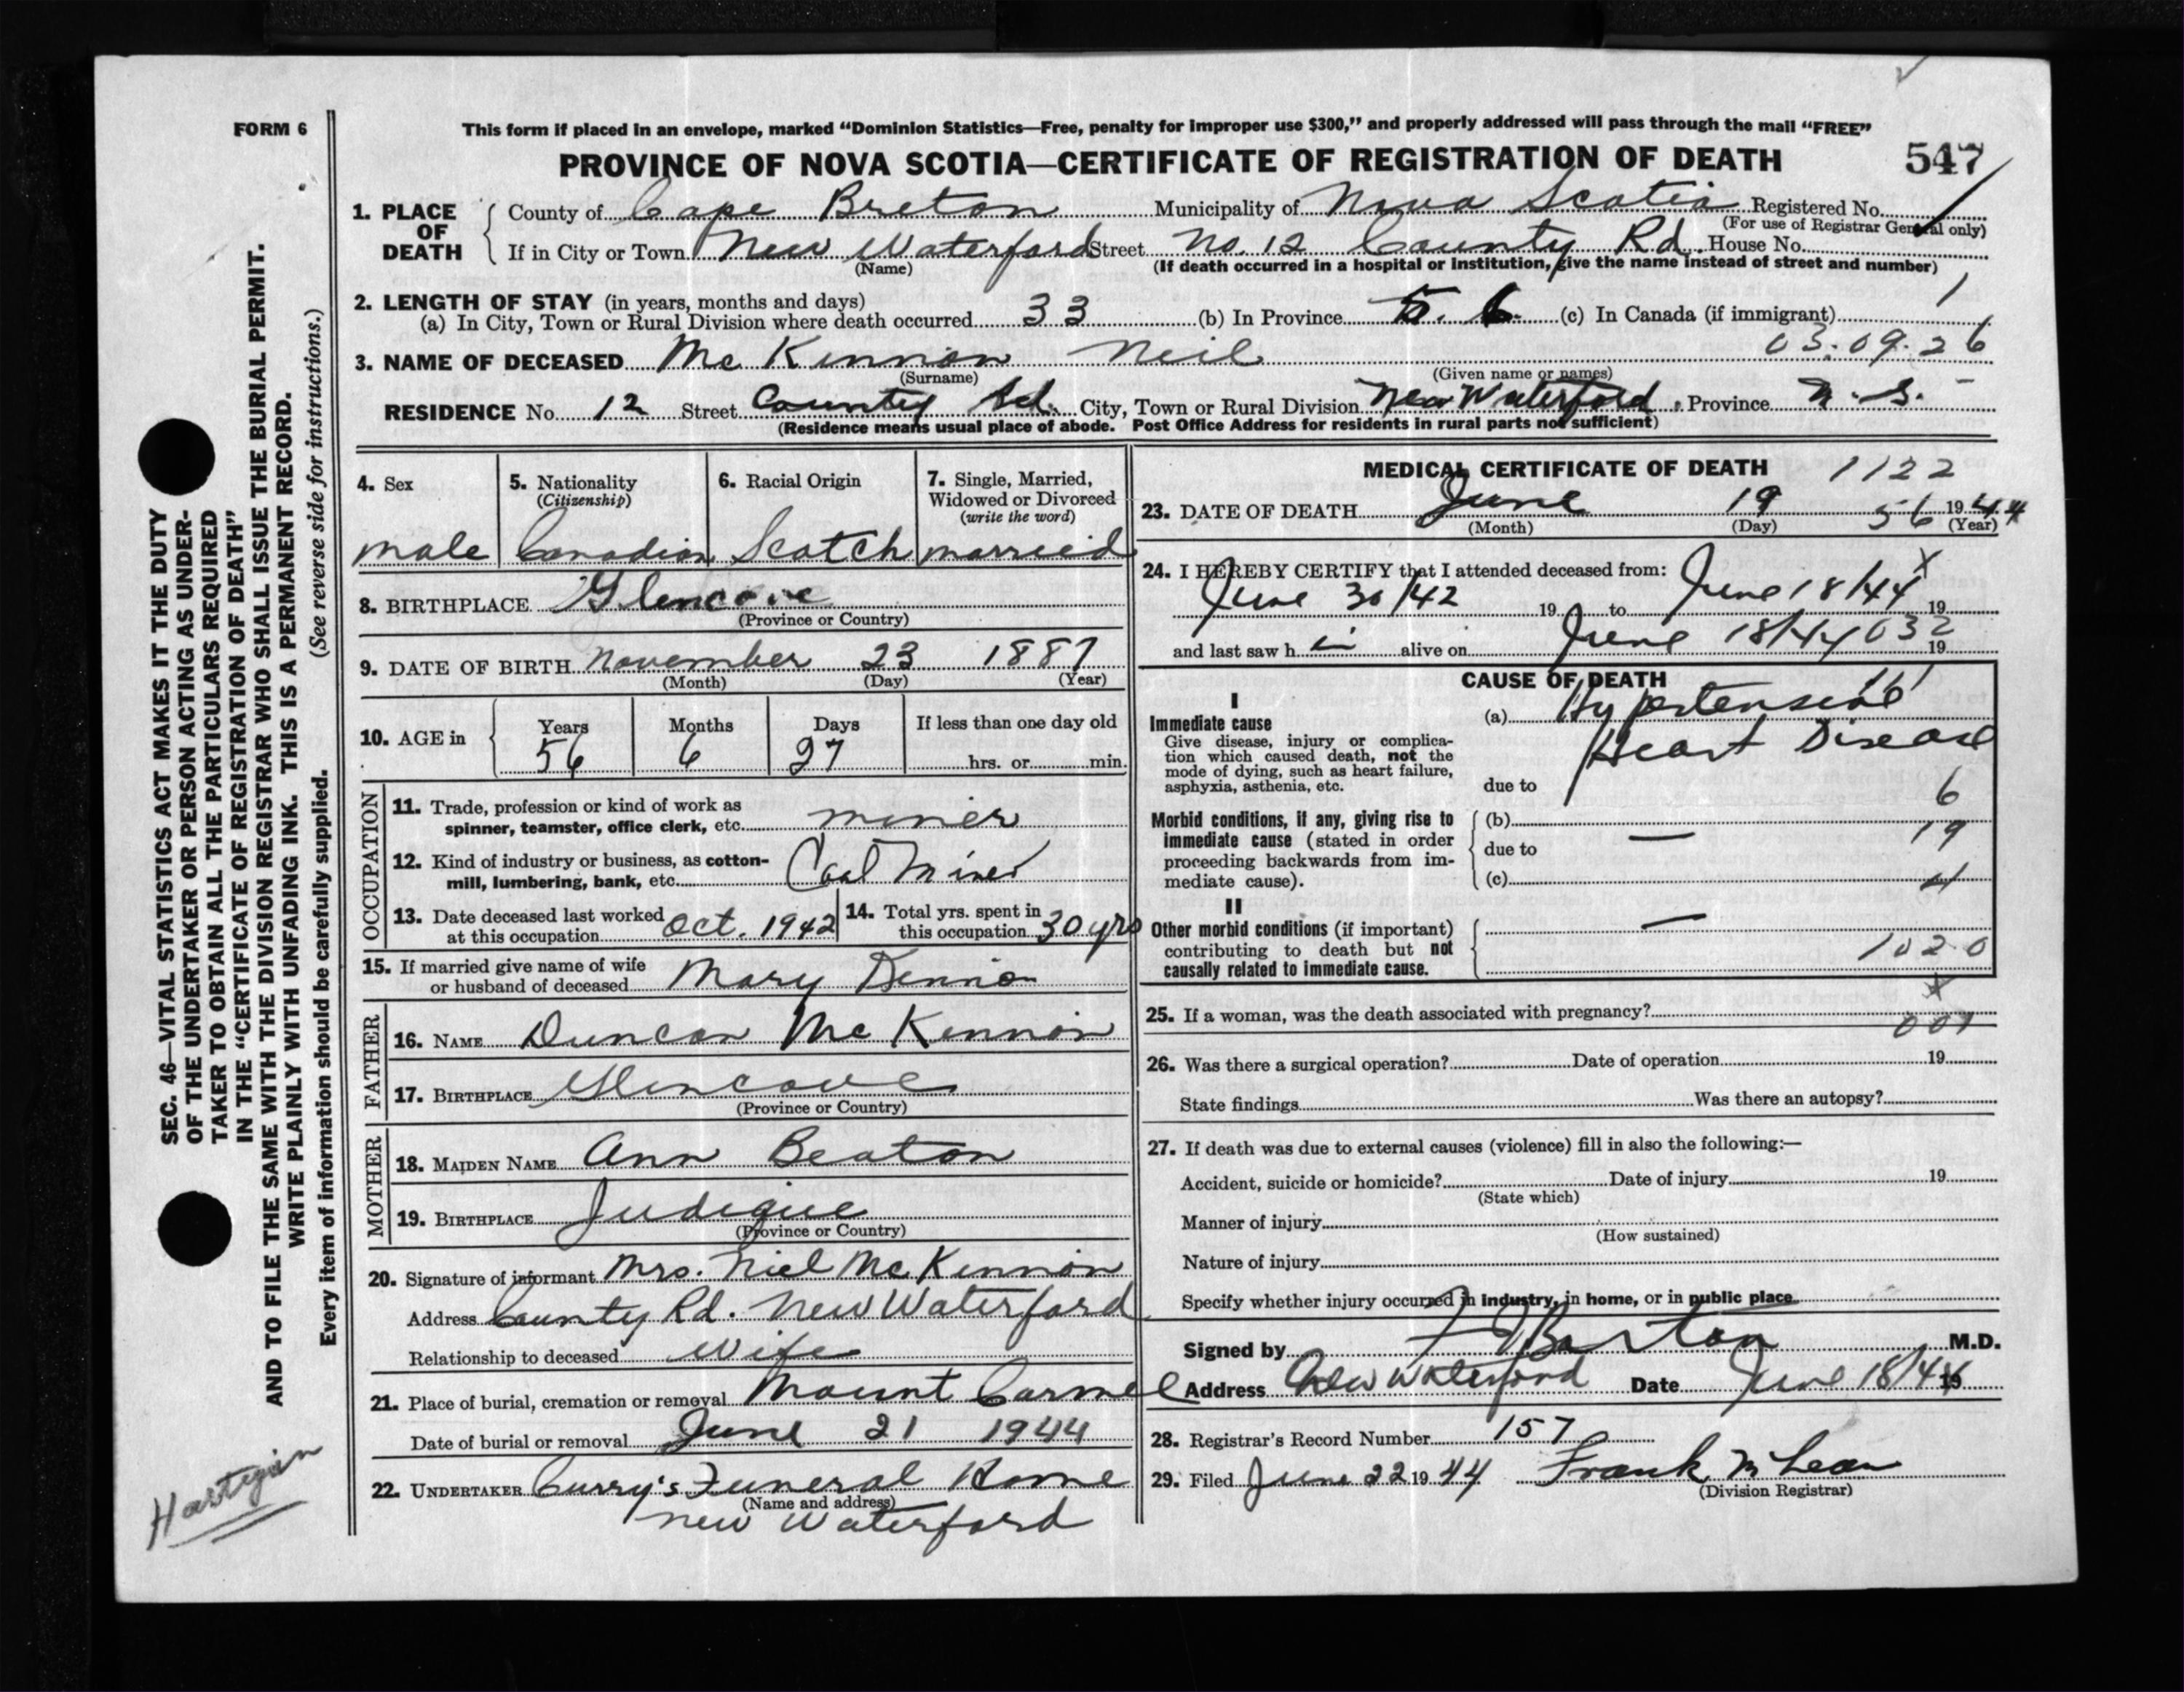 FORM 6
This form if placed in an envelope, marked “Dominion Statistics—Free, penalty for improper use $300,” and properly addressed will pass through the mail “FREE”
PROVINCE OF NOVA SCOTIA—CERTIFICATE OF REGISTRATION OF DEATH 547
1. PLACE OF DEATH
County of Cape Breton Municipality of Nova Scotia Registered No.
(For use of Registrar General only)
If in City or Town New Waterford Street No. 12 County Rd. House No.
(Name) (If death occurred in a hospital or institution, give the name instead of street and number)
2. LENGTH OF STAY (in years, months and days) 1
(a) In City, Town or Rural Division where death occurred 33 (b) In Province (c) In Canada (if immigrant)
3. NAME OF DECEASED Mc Kinnon Neil 03.09.26
(Surname) (Given name or names)
RESIDENCE No. 12 Street County Rd. City, Town or Rural Division New Waterford Province N.S.
(Residence means usual place of abode. Post Office Address for residents in rural parts not sufficient)
4. Sex
male
5. Nationality
(Citizenship)
Canadian
6. Racial Origin
Scotch
7. Single, Married,
Widowed or Divorced
(write the word)
married
8. BIRTHPLACE Glencove
(Province or Country)
9. DATE OF BIRTH November 23 1887
(Month) (Day) (Year)
10. AGE in
Years Months Days If less than one day old
56 6 27 hrs. or min.
OCCUPATION
11. Trade, profession or kind of work as
spinner, teamster, office clerk, etc. miner
12. Kind of industry or business, as cotton-
mill, lumbering, bank, etc. Coal Mines
13. Date deceased last worked
at this occupation Oct. 1942
14. Total yrs. spent in
this occupation 30 yrs
15. If married give name of wife
or husband of deceased Mary
FATHER
16. NAME Duncan Mc Kinnon
17. BIRTHPLACE Glencove
(Province or Country)
MOTHER
18. MAIDEN NAME Ann Beaton
19. BIRTHPLACE Judique
(Province or Country)
20. Signature of informant Mrs. Niel Mc Kinnon
Address County Rd. New Waterford
Relationship to deceased wife
21. Place of burial, cremation or removal Mount Carmel
Date of burial or removal June 21 1944
22. UNDERTAKER Curry's Funeral Home
(Name and address)
New Waterford
MEDICAL CERTIFICATE OF DEATH 1122
23. DATE OF DEATH June 19 56 1944
(Month) (Day) (Year)
24. I HEREBY CERTIFY that I attended deceased from: x
June 30/42 19 to June 18/44 19
and last saw h alive on June 18/44 032 19
CAUSE OF DEATH
I
Immediate cause
Give disease, injury or complica-
tion which caused death, not the
mode of dying, such as heart failure,
asphyxia, asthenia, etc.
(a) Hypertensive
Heart Disease
due to 6
Morbid conditions, if any, giving rise to
immediate cause (stated in order
proceeding backwards from im-
mediate cause).
(b) 19
due to —
(c) 4
II
Other morbid conditions (if important)
contributing to death but not
causally related to immediate cause.
—
1020
25. If a woman, was the death associated with pregnancy?
26. Was there a surgical operation? Date of operation 19
State findings Was there an autopsy?
27. If death was due to external causes (violence) fill in also the following:—
Accident, suicide or homicide? Date of injury 19
(State which)
Manner of injury
(How sustained)
Nature of injury
Specify whether injury occurred in industry, in home, or in public place
Signed by Barton M.D.
Address New Waterford Date June 18/44 19
28. Registrar's Record Number 157
29. Filed June 22 1944 Frank McLean
(Division Registrar)
SEC. 46—VITAL STATISTICS ACT MAKES IT THE DUTY
OF THE UNDERTAKER OR PERSON ACTING AS UNDER-
TAKER TO OBTAIN ALL THE PARTICULARS REQUIRED
IN THE “CERTIFICATE OF REGISTRATION OF DEATH”
AND TO FILE THE SAME WITH THE DIVISION REGISTRAR WHO SHALL ISSUE THE BURIAL PERMIT.
WRITE PLAINLY WITH UNFADING INK. THIS IS A PERMANENT RECORD.
Every item of information should be carefully supplied. (See reverse side for instructions.)
Hartigan